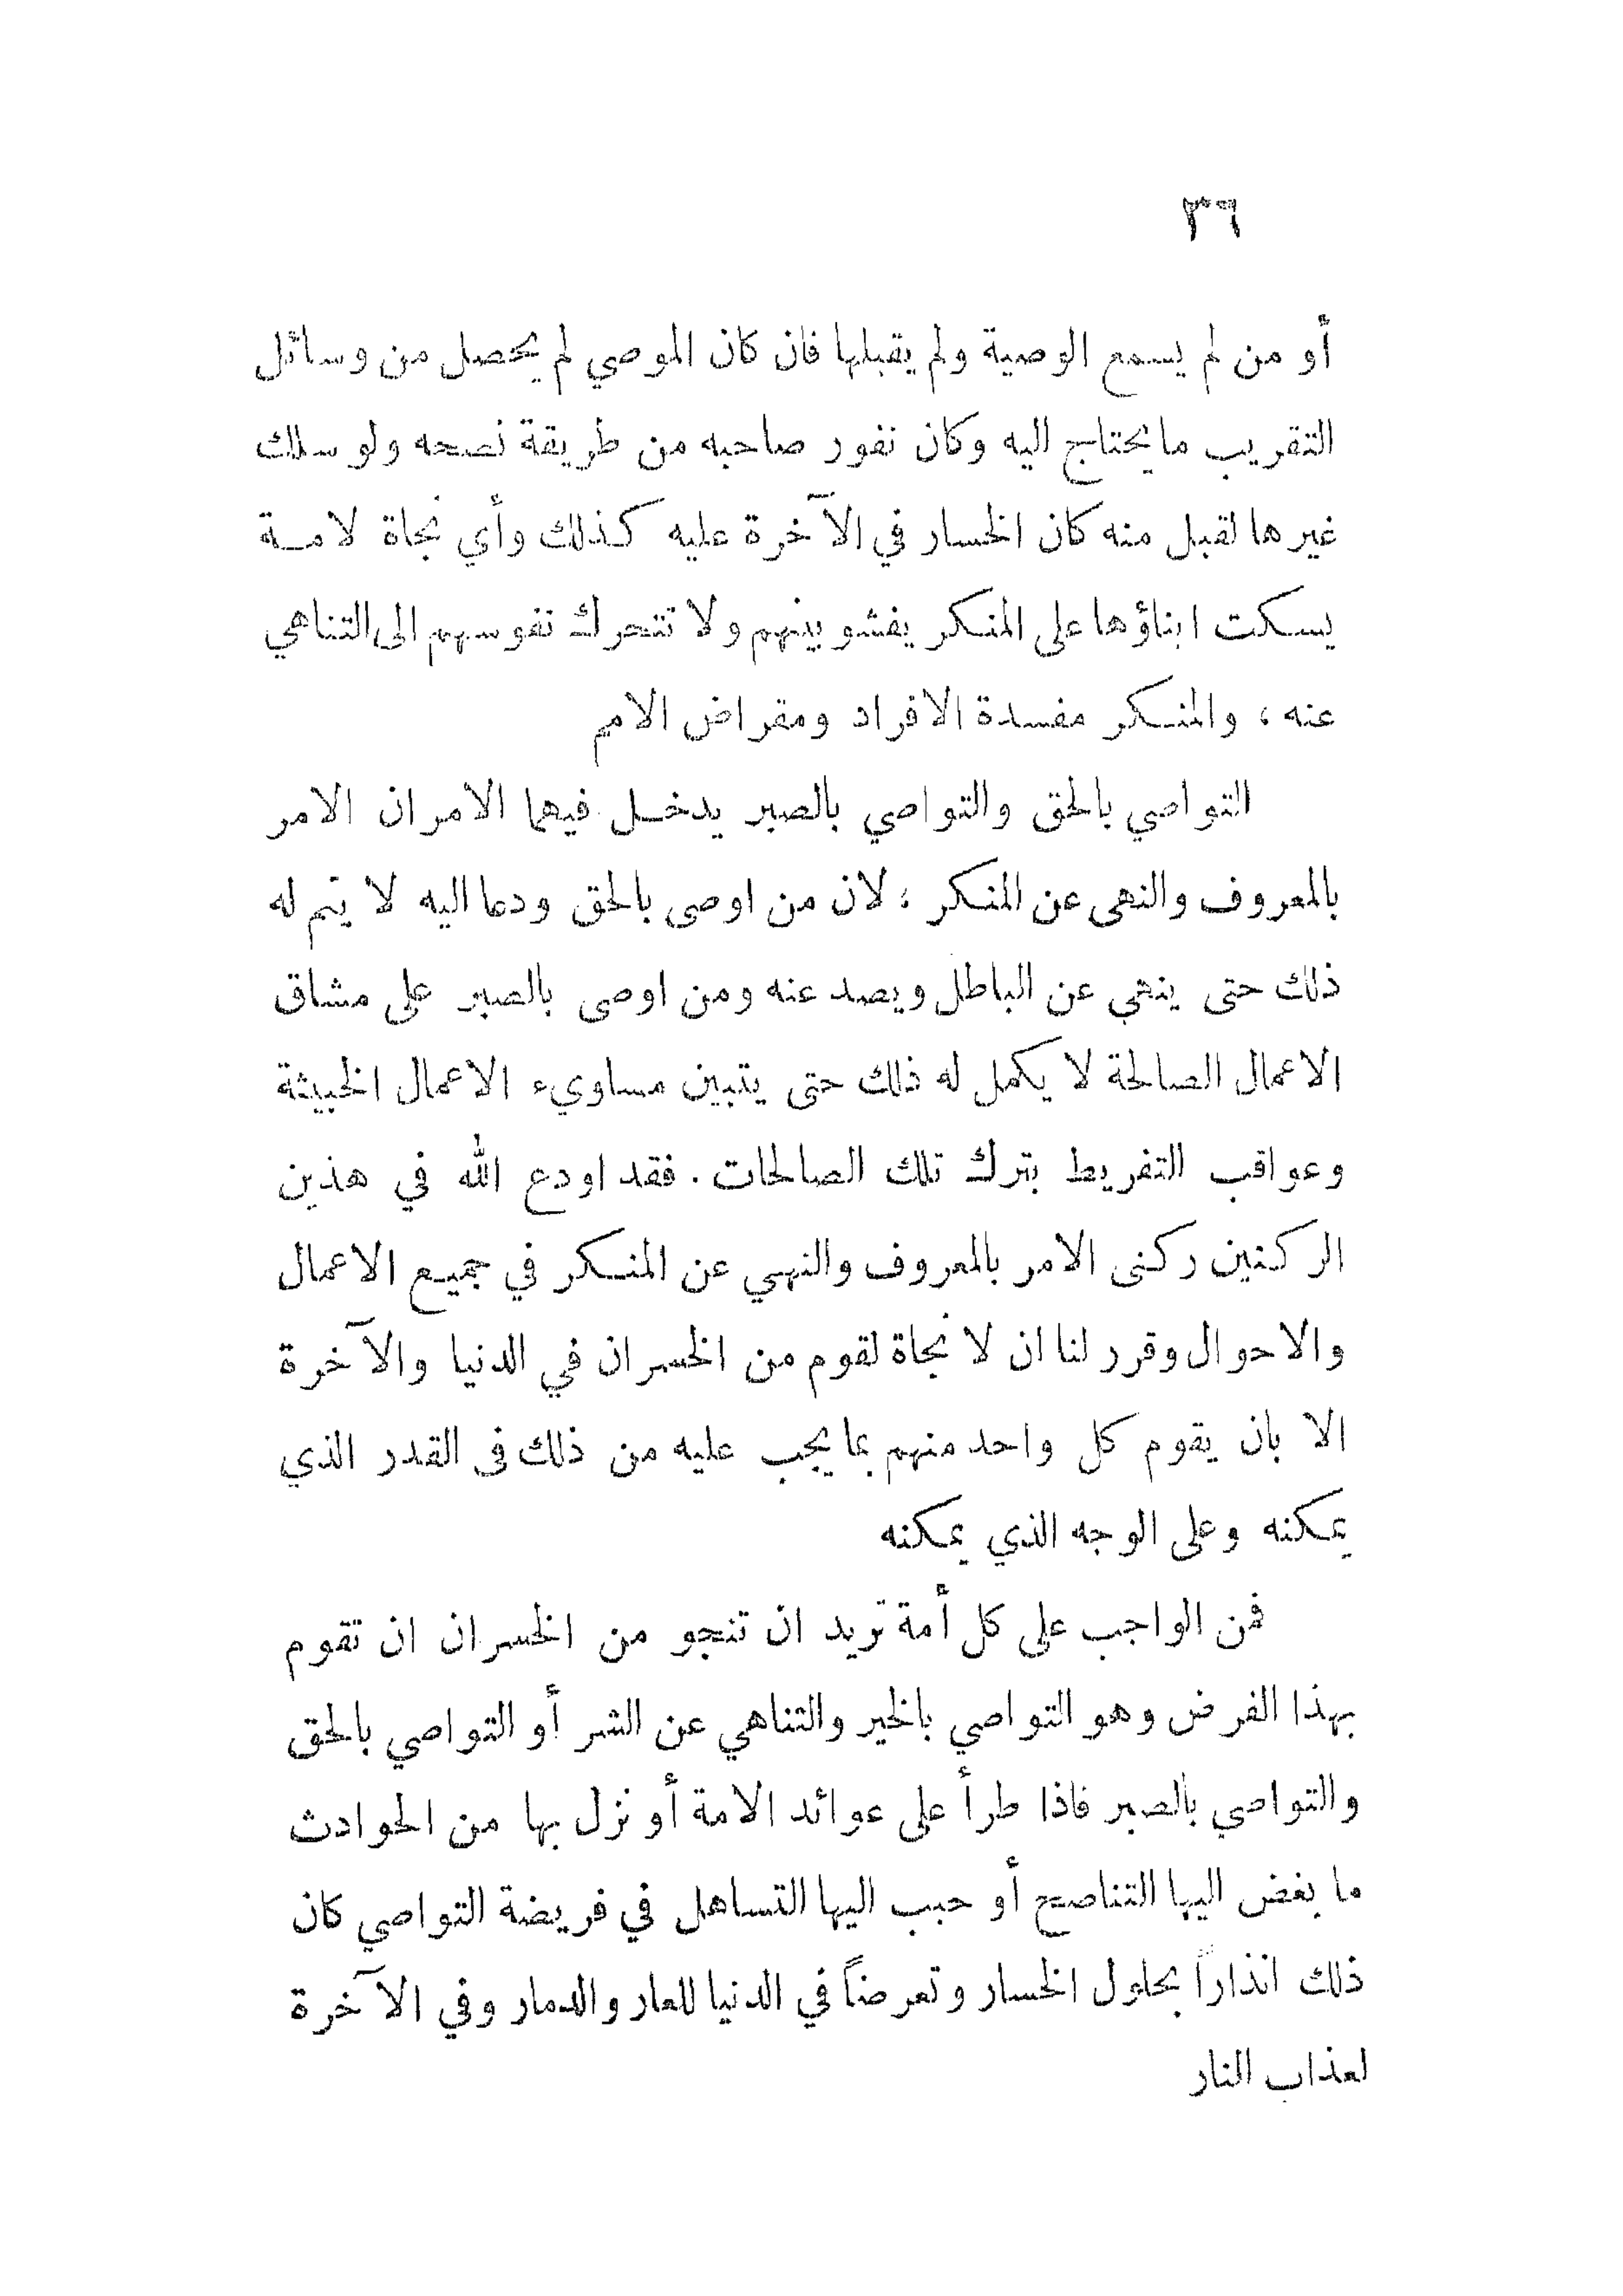 ٣٦
أو من لم يسمع الوصية ولم يقبلها فان كان الموصي لم يحصل من وسائل
التقريب ما يحتاج اليه وكان نفور صاحبه من طريقة نصحه ولو سلك
غيرها لقبل منه كان الخسار في الآخرة عليه كذلك وأي نجاة لامة
يسكت ابناؤها على المنكر يفشو بينهم ولا تتحرك نفوسهم الى التناهي
عنه ، والمنكر مفسدة الافراد ومقراض الامم
التواصي بالحق والتواصي بالصبر يدخل فيهما الامران الامر
بالمعروف والنهى عن المنكر ؛ لان من اوصى بالحق ودعا اليه لا يتم له
ذلك حتى ينهي عن الباطل ويصد عنه ومن اوصى بالصبر على مشاق
الاعمال الصالحة لا يكمل له ذلك حتى يتبين مساويء الاعمال الخبيثة
وعواقب التفريط بترك تلك الصالحات . فقد اودع الله في هذين
الركنين ركنى الامر بالمعروف والنهي عن المنكر في جميع الاعمال
والاحوال وقرر لنا ان لا نجاة لقوم من الخسران في الدنيا والآخرة
الا بان يقوم كل واحد منهم بما يجب عليه من ذلك فى القدر الذي
يمكنه وعلى الوجه الذي يمكنه
فمن الواجب على كل أمة تريد ان تنجو من الخسران ان تقوم
بهذا الفرض وهو التواصي بالخير والتناهي عن الشر أو التواصي بالحق
والتواصي بالصبر فاذا طرأ على عوائد الامة أو نزل بها من الحوادث
ما بغض اليها التناصح أو حبب اليها التساهل في فريضة التواصي كان
ذلك انذاراً بحلول الخسار وتعرضاً في الدنيا للعار والدمار وفي الآخرة
لعذاب النار